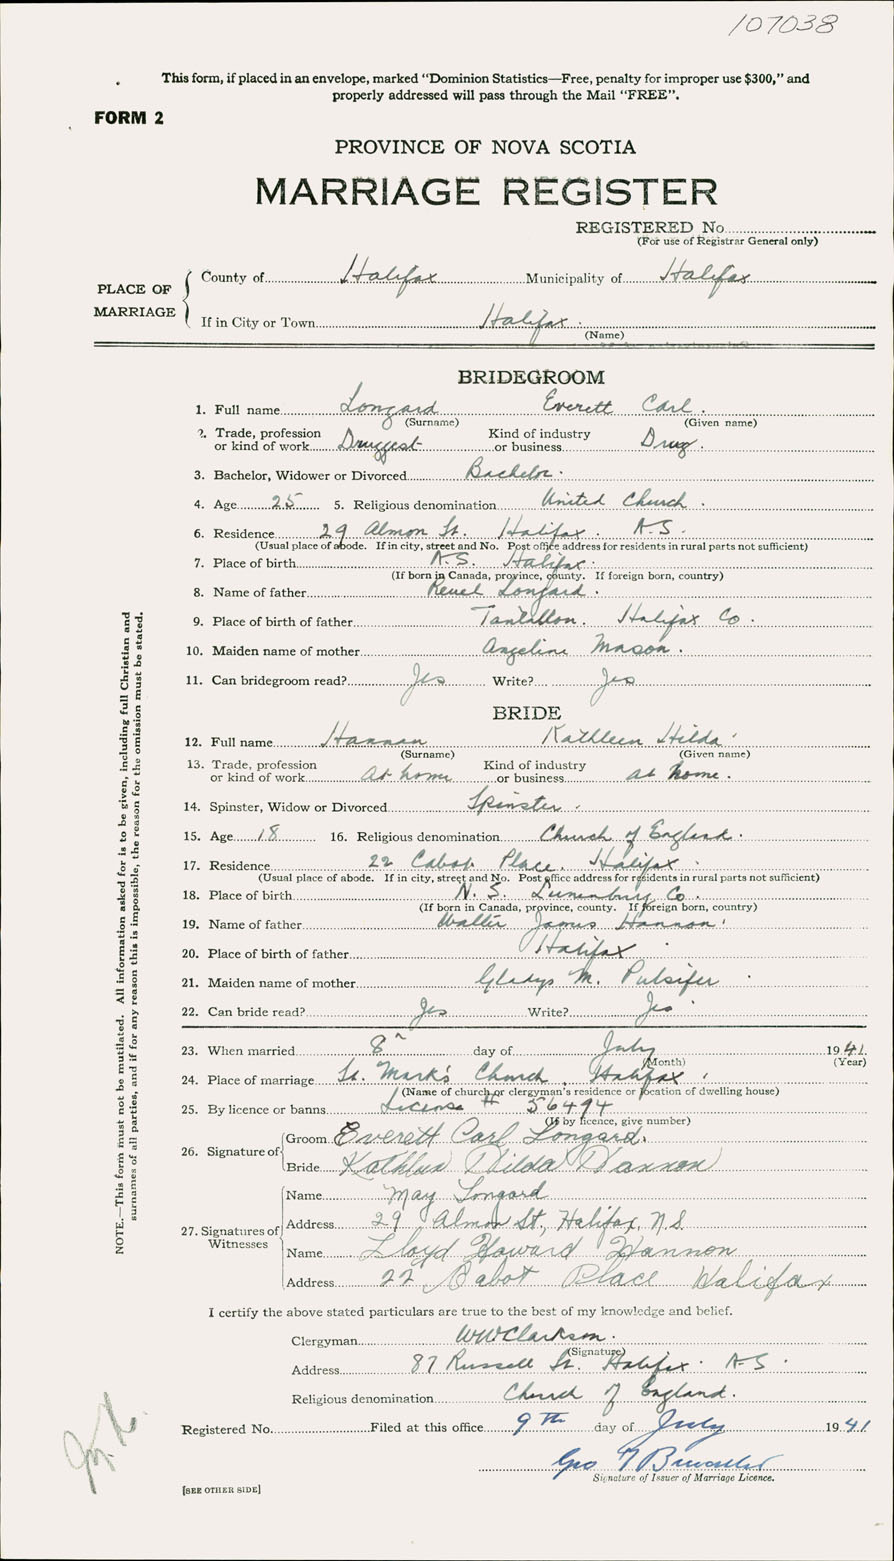 107038
This form, if placed in an envelope, marked “Dominion Statistics—Free, penalty for improper use $300,” and
properly addressed will pass through the Mail “FREE”.
FORM 2
PROVINCE OF NOVA SCOTIA
MARRIAGE REGISTER
REGISTERED No
(For use of Registrar General only)
PLACE OF MARRIAGE
County of Halifax Municipality of Halifax
If in City or Town Halifax.
(Name)
BRIDEGROOM
1. Full name Longard Everett Carl.
(Surname) (Given name)
2. Trade, profession or kind of work Druggest Kind of industry or business Drug.
3. Bachelor, Widower or Divorced Bachelor.
4. Age 25 5. Religious denomination United Church.
6. Residence 29 Almon St. Halifax. N.S.
(Usual place of abode. If in city, street and No. Post office address for residents in rural parts not sufficient)
7. Place of birth N.S. Halifax.
(If born in Canada, province, county. If foreign born, country)
8. Name of father Reuel Longard.
9. Place of birth of father Tantallon. Halifax Co.
10. Maiden name of mother Angeline Mason.
11. Can bridegroom read? Yes Write? Yes
BRIDE
12. Full name Hannon Kathleen Hilda
(Surname) (Given name)
13. Trade, profession or kind of work At home Kind of industry or business at home.
14. Spinster, Widow or Divorced Spinster.
15. Age 18 16. Religious denomination Church of England.
17. Residence 22 Cabot Place, Halifax.
(Usual place of abode. If in city, street and No. Post office address for residents in rural parts not sufficient)
18. Place of birth N.S. Lunenburg Co.
(If born in Canada, province, county. If foreign born, country)
19. Name of father Walter James Hannon.
20. Place of birth of father Halifax
21. Maiden name of mother Gladys M. Pulsifer
22. Can bride read? Yes Write? Yes
23. When married 8 day of July 1941.
(Month) (Year)
24. Place of marriage St. Mark's Church, Halifax,
(Name of church or clergyman's residence or location of dwelling house)
25. By licence or banns License # 56494
(If by licence, give number)
26. Signature of
Groom Everett Carl Longard.
Bride Kathleen Hilda Hannon
27. Signatures of Witnesses
Name May Longard
Address 29 Almon St., Halifax, N.S.
Name Lloyd Howard Hannon
Address 22 Cabot Place Halifax
I certify the above stated particulars are true to the best of my knowledge and belief.
Clergyman WWClarkson.
(Signature)
Address 87 Russell St. Halifax. N-S.
Religious denomination Church of England.
Registered No. Filed at this office 9th day of July 1941
Geo
Signature of Issuer of Marriage Licence.
[SEE OTHER SIDE]
NOTE.—This form must not be mutilated. All information asked for is to be given, including full Christian and
surnames of all parties, and if for any reason this is impossible, the reason for the omission must be stated.